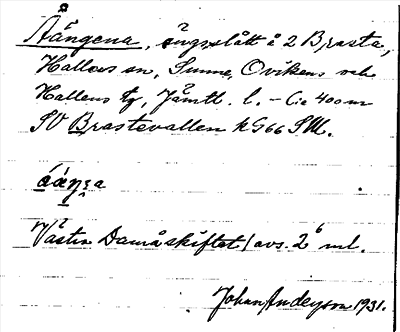 Åängena, ängsslått å 2 Brasta,
Hallens sn, Sunne, Ovikens och
Hallens tg, Jämtl. l. – Ca 400 m
SV Brastevallen k G66 SM.
áàŋa
Västra Damåskiftet / avs. 2 ml.
Johan Anderson 1931.